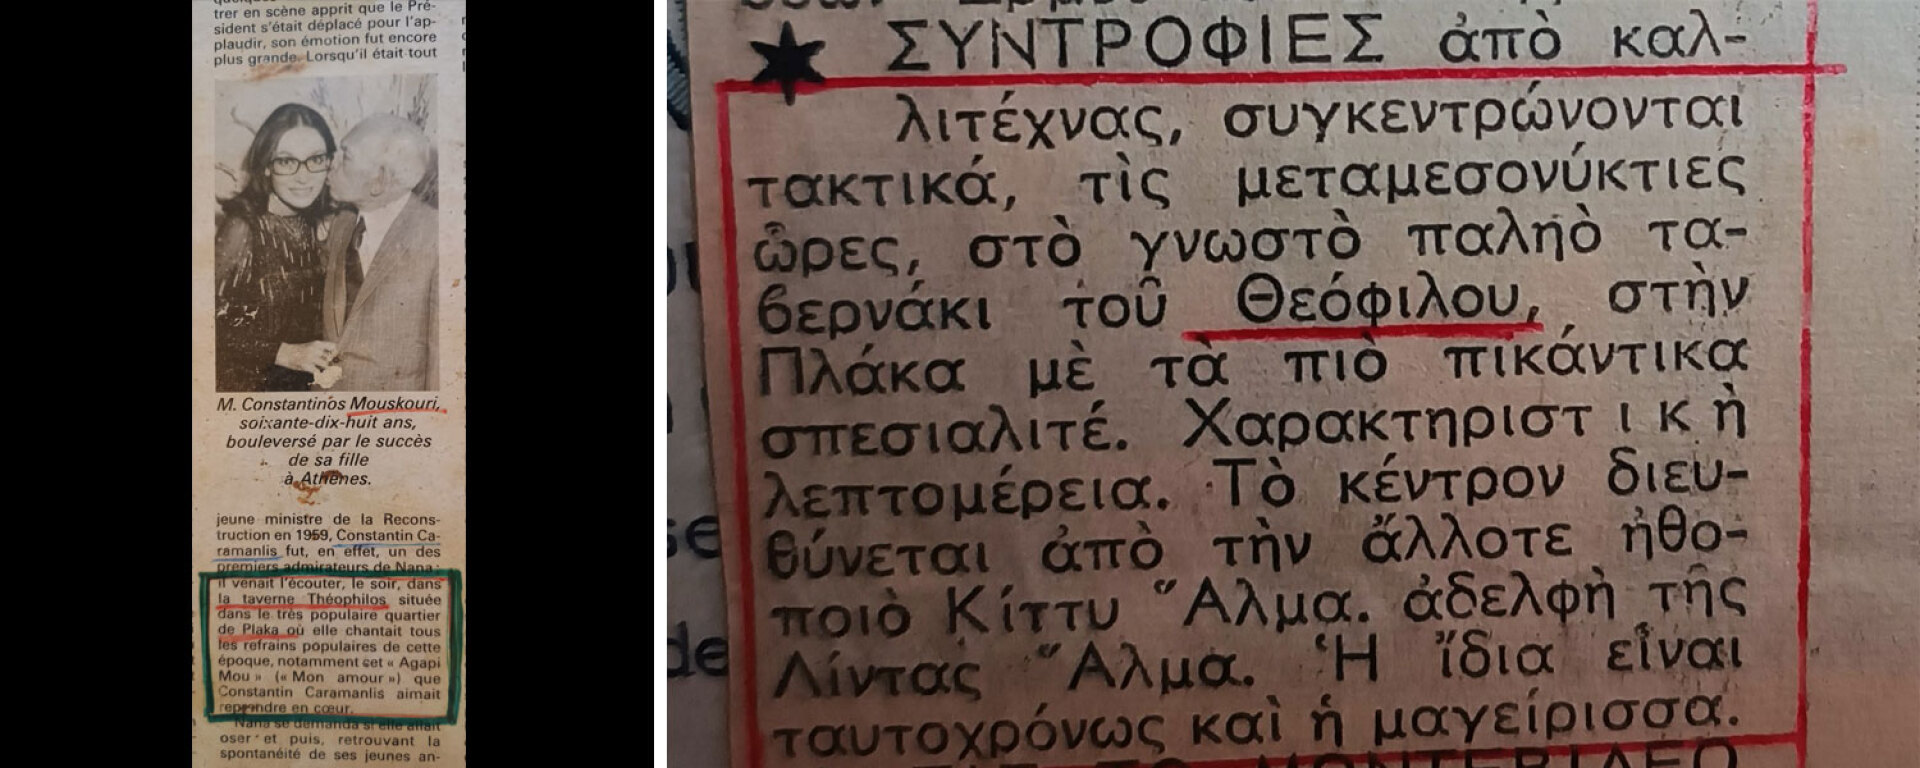 trer en scène apprit que le Pré-
sident s'était déplacé pour l'ap-
plaudir, son émotion fut encore
plus grande. Lorsqu'il était tout
M. Constantinos Mouskouri,
soixante-dix-huit ans,
bouleversé par le succès
de sa fille
à Athènes.
jeune ministre de la Recons-
truction en 1959, Constantin Ca-
ramanlis fut, en effet, un des
premiers admirateurs de Nana :
il venait l'écouter, le soir, dans
la taverne Théophilos située
dans le très populaire quartier
de Plaka où elle chantait tous
les refrains populaires de cette
époque, notamment cet « Agapi
Mou » (« Mon amour ») que
Constantin Caramanlis aimait
reprendre en cœur.
Nana se demanda si elle allait
oser et puis, retrouvant la
spontanéité de ses jeunes an-
ΣΥΝΤΡΟΦΙΕΣ ἀπὸ καλ-
λιτέχνας, συγκεντρώνονται
τακτικά, τὶς μεταμεσονύκτιες
ὧρες, στὸ γνωστὸ παληὸ τα-
βερνάκι τοῦ Θεόφιλου, στὴν
Πλάκα μὲ τὰ πιὸ πικάντικα
σπεσιαλιτέ. Χαρακτηριστικὴ
λεπτομέρεια. Τὸ κέντρον διευ-
θύνεται ἀπὸ τὴν ἄλλοτε ἠθο-
ποιὸ Κίττυ Ἄλμα. ἀδελφὴ τῆς
Λίντας Ἄλμα. Ἡ ἴδια εἶναι
ταυτοχρόνως καὶ ἡ μαγείρισσα.